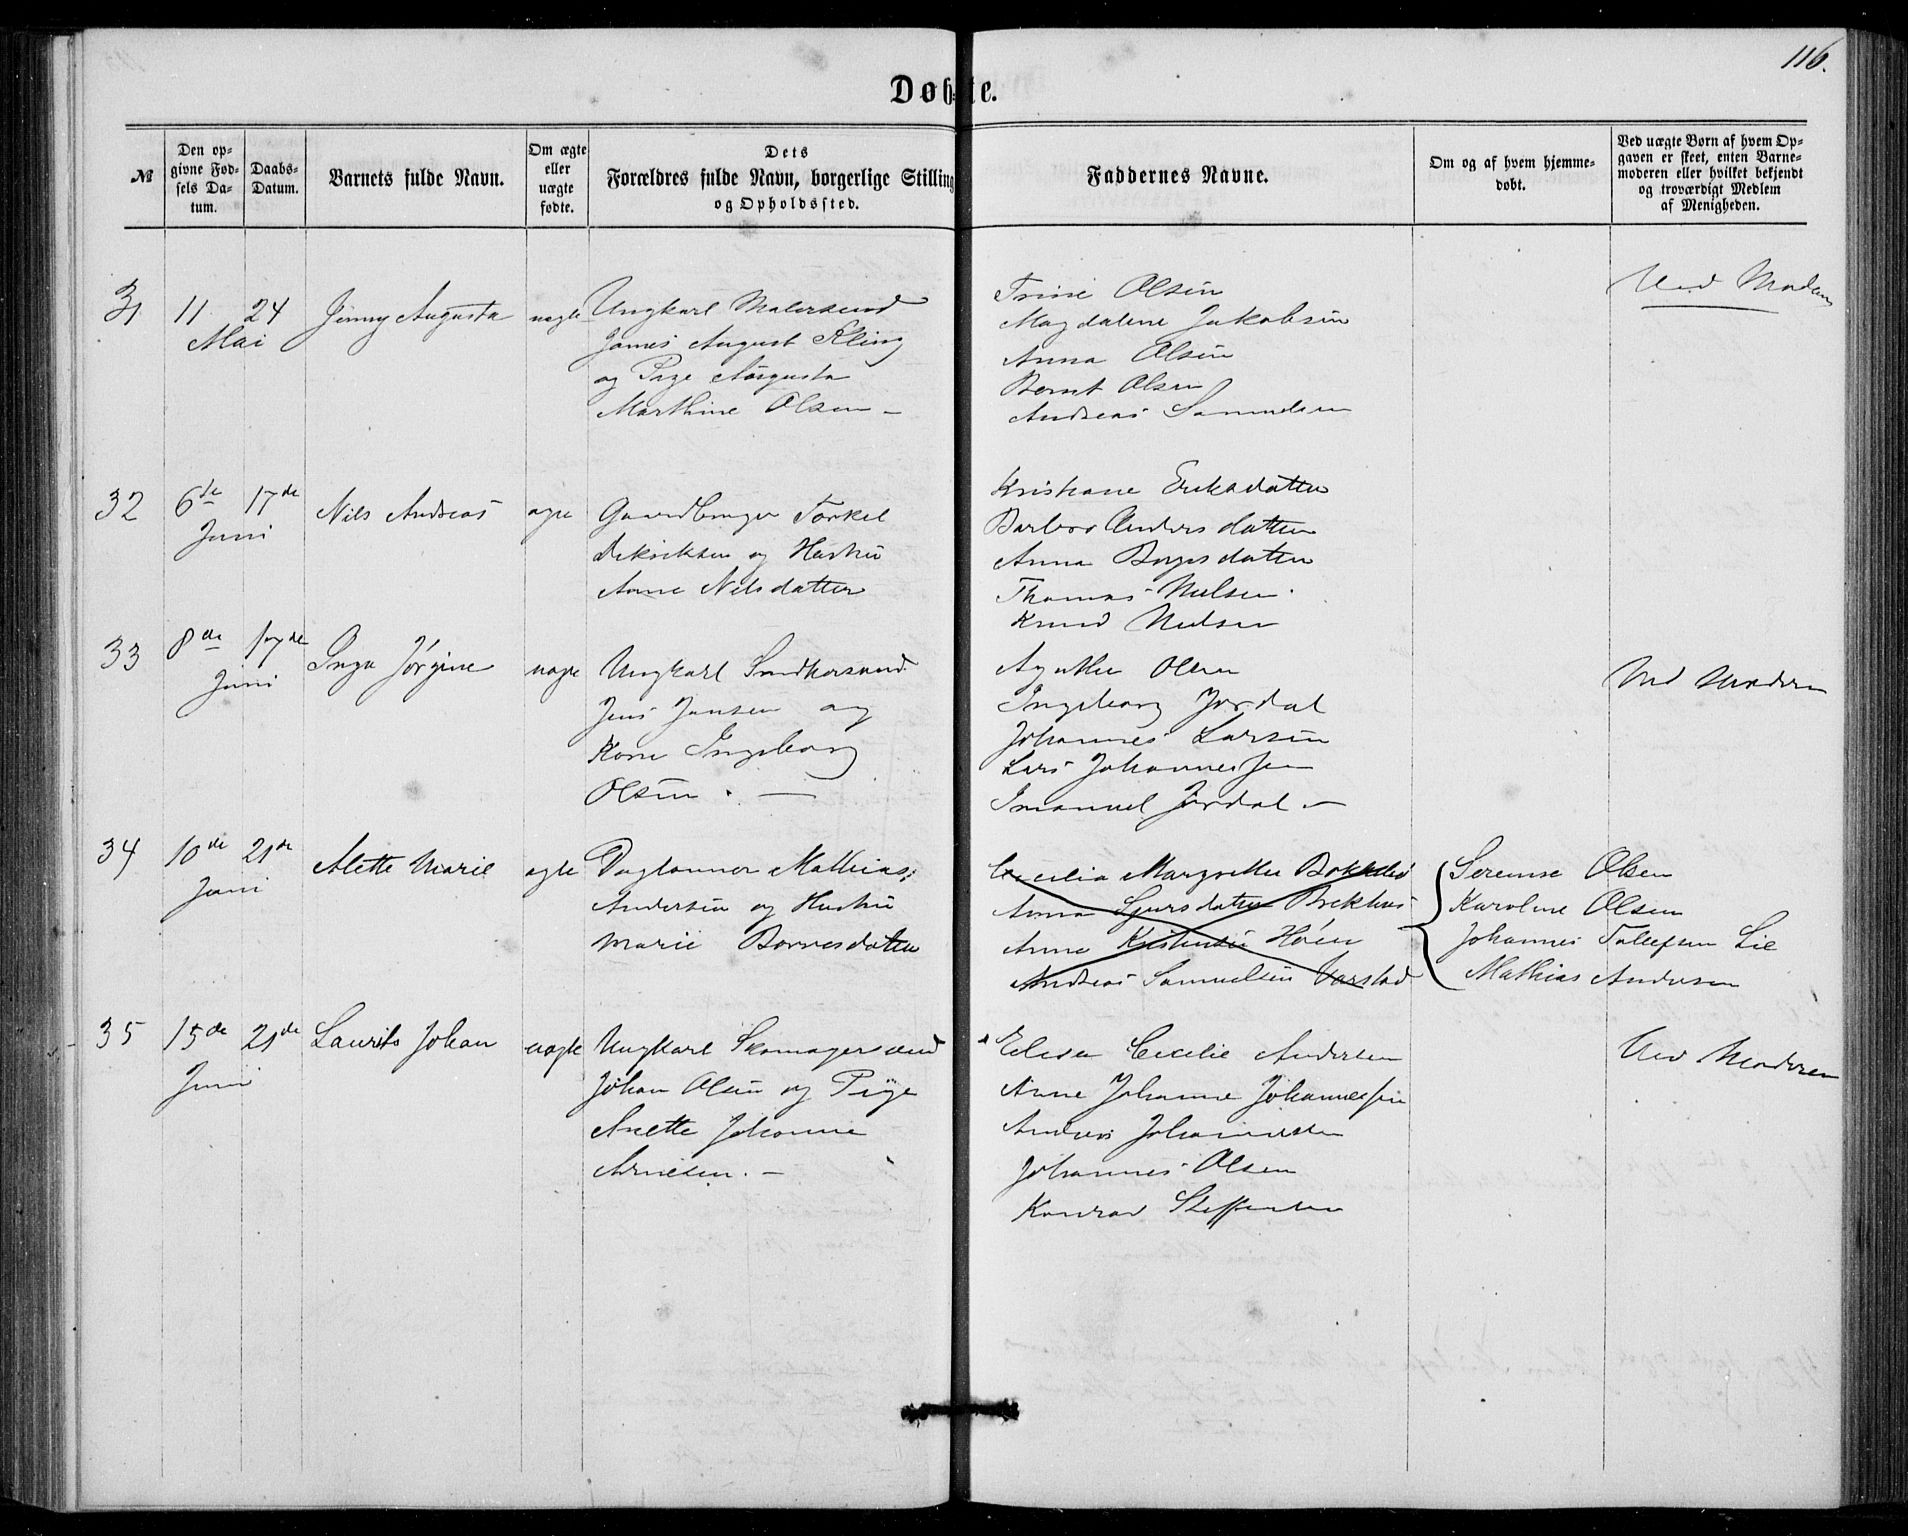 116.
Døbte.
№
Den op-
givne Fød-
sels Da-
tum.
Daabs-
Datum.
Barnets fulde Navn.
Om ægte
eller
uægte
fødte.
Dets
Forældres fulde Navn, borgerlige Stilling
og Opholdssted.
Faddernes Navne.
Om og af hvem hjemme-
døbt.
Ved uægte Børn af hvem Op-
gaven er skeet, enten Barne-
moderen eller hvilket bekjendt
og troværdigt Medlem
af Menigheden.
31 11 24 Jenny Augusta uægte
Mai
Ungkarl Malersvend
James August Kling
og Pige Augusta
Marthine Olsen –
Trine Olsen
Magdalene Jakobsen
Anna Olsen
Bernt Olsen
Andreas Samuelsen
Ved Moderen
32 6te 17de Nils Andreas ægte
Juni
Gaardbruger Torkel
og Hustru
Anne Nilsdatter
Kristiane Eriksdatter
Barbro Andersdatter
Anna Børgesdatter
Thomas Nielsen.
Knud Nielsen
33 8de 17de Inga Jørgine uægte
Juni
Ungkarl Smedkersvend
Jens Jansen og
Kone Ingeborg
Olsen. —
Agathe Olsen
Ingeborg Jordal
Johannes Larsen
Lars Johannessen
Imanuel Jordal –
Ved Moderen
34 10de 21de Alette Marie ægte
Juni
Daglønner Mathias
Andersen og Hustru
Marie Børresdatter
Cecilia Margrethe
Anna Sjursdatter Brekhus
Anna Kristensen Høien
Andreas Samuelsen Varstad
Serense Olsen
Karoline Olsen
Johannes Tollefsen Lie
Mathias Andersen
35 15de 21de Laurits Johan uægte
Juni
Ungkarl Skomagersvend
Johan Olsen og Pige
Anette Johanne
Arnesen. –
Elisa Cecilie Andersen
Anne Johanne Johannessen
Andreas Johannessen
Johannes Olsen
Konrad Steffensen
Ved Moderen